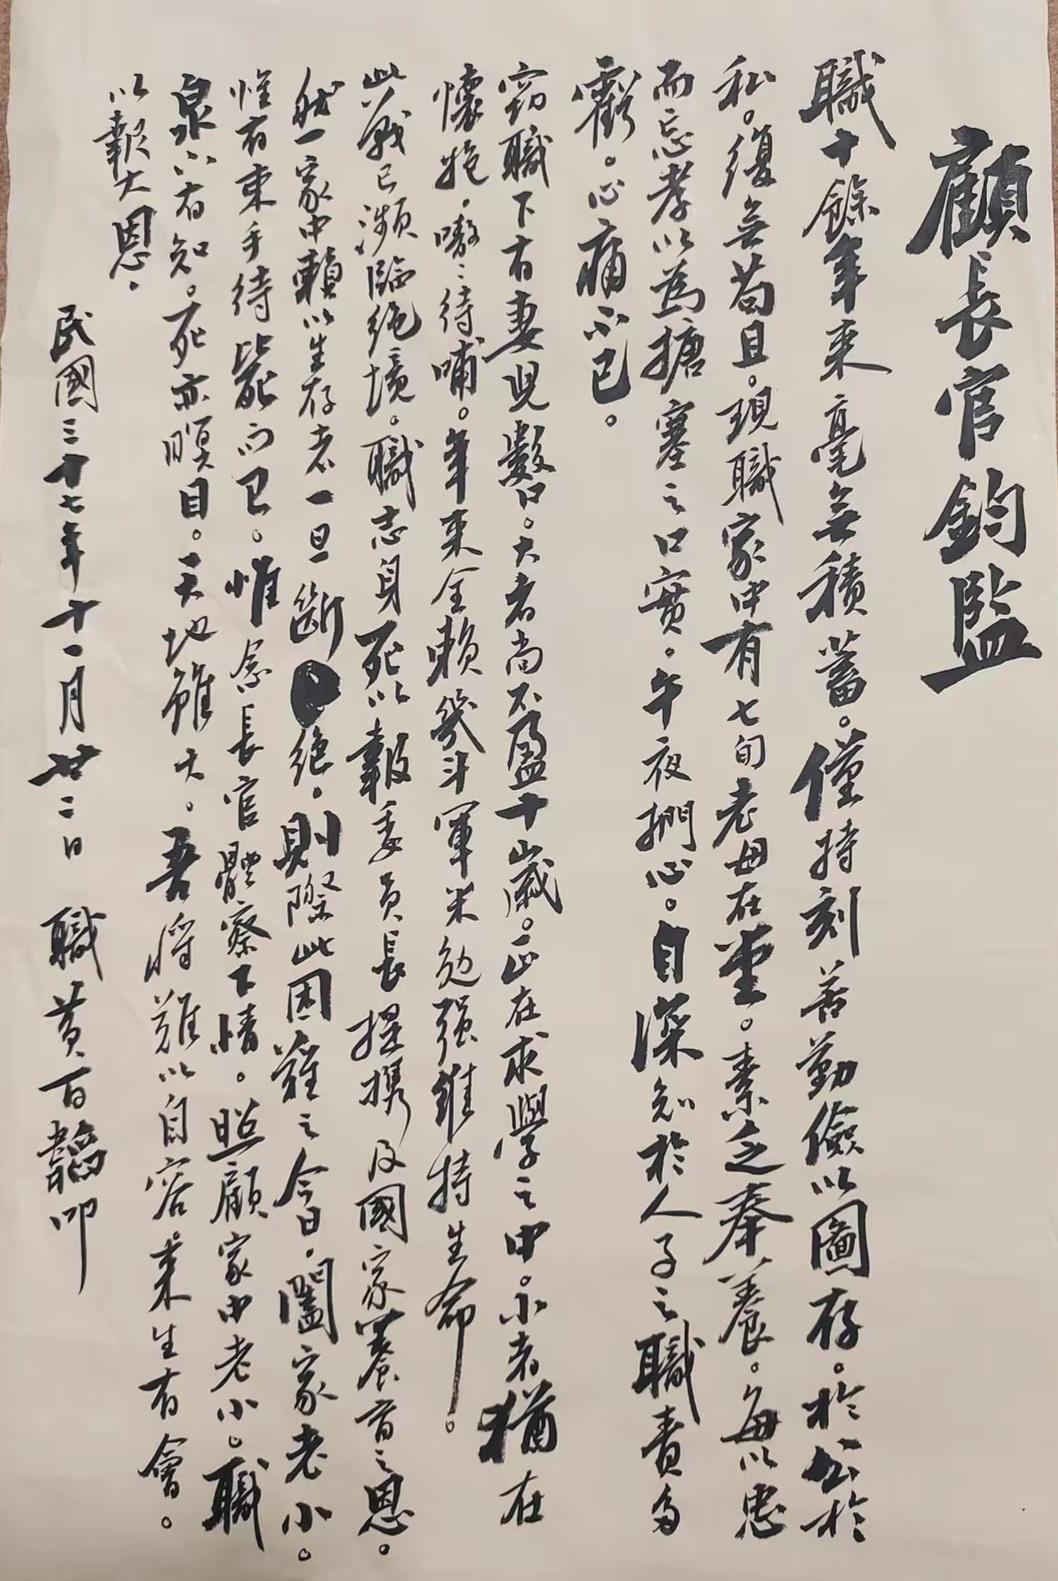 顧長官鈞監
職十餘年来毫無積蓄。僅持刻苦勤儉以圖存。於公於
私。復無苟且。現職家中有七旬老母在堂。素乏奉養。每以忠
而忘孝以為搪塞之口實。午夜捫心。自深知於人子之職責多
虧。心痛不已。
窃職下有妻児數口。大者尚不盈十歲。正在求學之中。小者猶在
懷抱。嗷々待哺。年来全賴幾斗軍米勉强維持生命。
此戰已瀕臨绝境。職志身死以報委員長提携及國家養育之恩。
然一家中賴以生存者一旦斷绝。則際此困難之今日。闔家老小。
惟有束手待毙而已。惟念長官體察下情。照顧家中老小。職
泉下有知。死亦瞑目。天地雖大。吾將難以自容。来生有會。
以報大恩。
民國三十七年十一月廿二日 職黄百韜叩